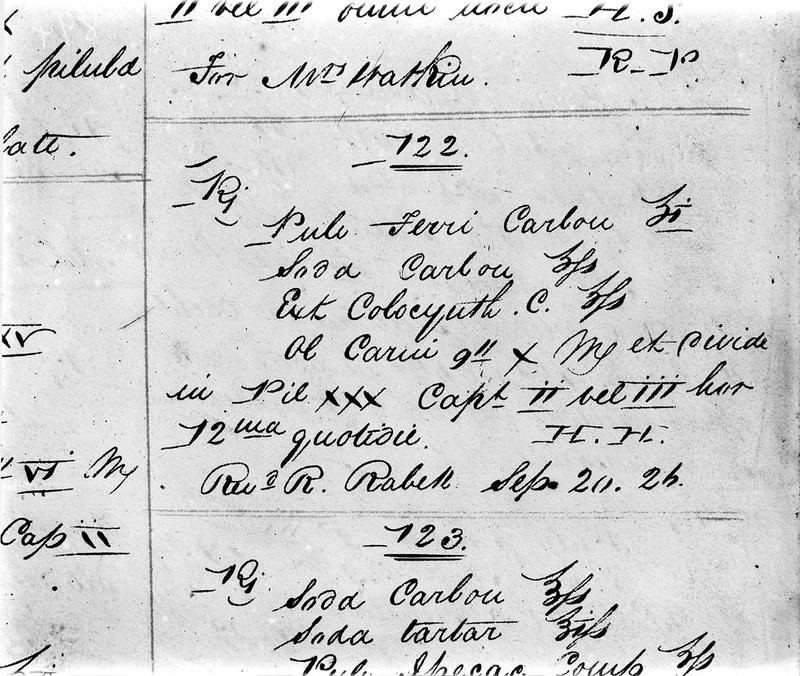 II vel III omni
H. S.
pilula
For Mrs Watkin. R. P.
122.
Rj
Pulv Ferri Carbon ʒi
Soda Carbon ʒſs
Ext Colocynth. C. ʒſs
Ol Carui gtt x M et divide
in Pil xxx Capt II vel III hor
12ma quotidie. H. H.
Revd R. Sep. 20. 26.
xv
vi M
Cap ii
123.
Rj
Soda Carbon ʒſs
Soda tartar ʒiſs
Pulv Ipecac Comp ʒſs